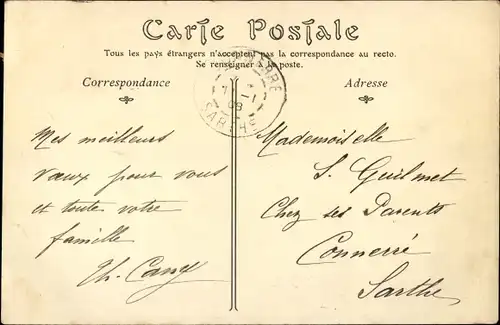 Carte Postale
Tous les pays étrangers n'acceptent pas la correspondance au recto.
Se renseigner à la poste.
Correspondance
Adresse
SARTHE
08
Mes meilleurs
vœux pour vous
et toute votre
famille
Mademoiselle
S. Guilmet
Chez ses Parents
Connerré
Sarthe